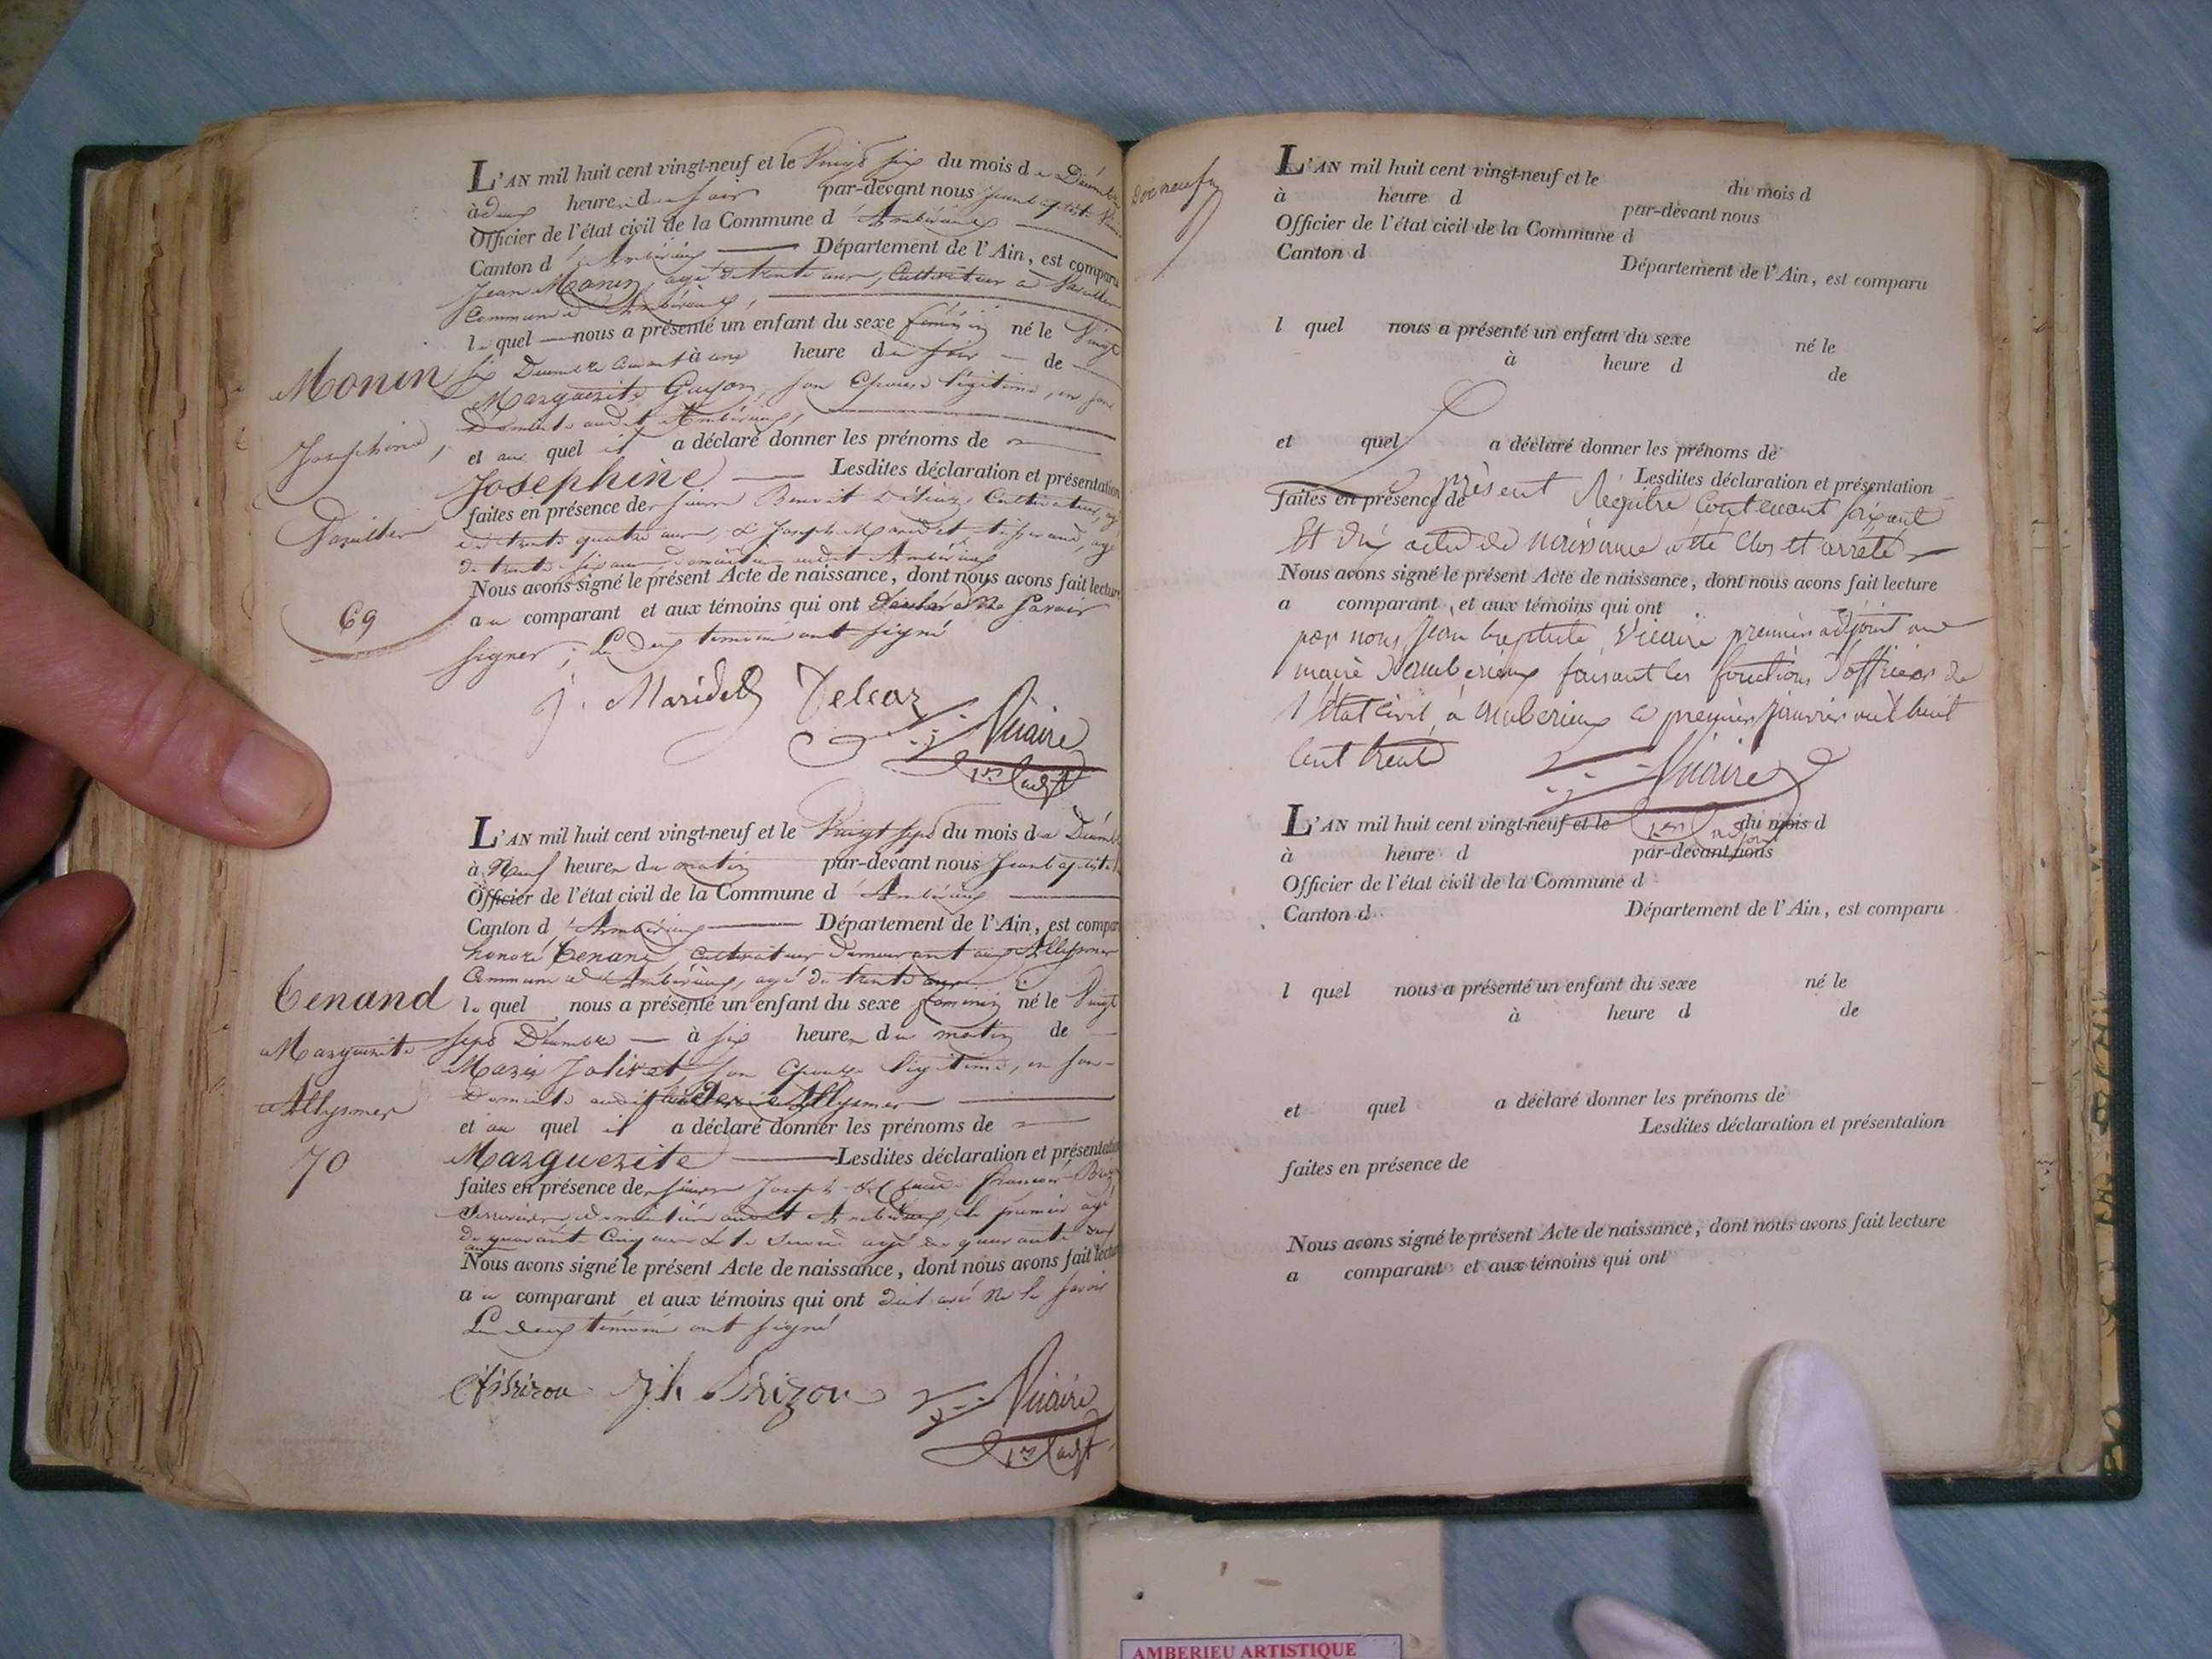 L'AN mil huit cent vingt-neuf et le Vingt six du mois de Décembre
à deux heures du soir par-devant nous Jean baptiste
Officier de l'état civil de la Commune d'Ambérieux
Canton d'Ambérieux Département de l'Ain, est comparu
Jean Monin, agé de trente ans, Cultivateur à
Commune d'Ambérieux,
lequel nous a présenté un enfant du sexe féminin né le Vingt
Monin
six Décembre Courant à une heure du soir de
Marguerite Guyon, son Epouse légitime, en son
Domicile audit Ambérieux,
Josephine,
et auquel il a déclaré donner les prénoms de
Josephine Lesdites déclaration et présentation
faites en présence de Benoit Cultivateur,
de trente quatre ans, & Joseph tisserand, agé
de trente six ans, audit Ambérieux
Nous avons signé le présent Acte de naissance, dont nous avons fait lecture
69
au comparant et aux témoins qui ont déclaré ne savoir
signer; Les deux temoins ont signé
J. Maridet
Vicaire
1er adjt
L'AN mil huit cent vingt-neuf et le Vingt sept du mois de Décembre
à Neuf heures du matin par-devant nous Jean baptiste
Officier de l'état civil de la Commune d'Ambérieux
Canton d'Ambérieux Département de l'Ain, est comparu
honoré Tenand, Cultivateur Demeurant aux Allysmes
Commune d'Ambérieux, agé de trente ans
Tenand
lequel nous a présenté un enfant du sexe feminin né le Vingt
Marguerite
sept Décembre à six heures du matin de
Marie Jolivet, son Epouse légitime, en son
Domicile audit Allysmes
Allysmes
et au quel il a déclaré donner les prénoms de
70
Marguerite Lesdites déclaration et présentation
faites en présence de Joseph &
audit Ambérieux, le premier agé
de quarante Cinq ans & le Second agé de quarante deux
ans
Nous avons signé le présent Acte de naissance, dont nous avons fait lecture
au comparant et aux témoins qui ont ne le savoir
Les deux témoins ont signé
Jh Brizon
Vicaire
1er adjt
L'AN mil huit cent vingt-neuf et le du mois d
à heure d par-devant nous
Officier de l'état civil de la Commune d
Canton d Département de l'Ain, est comparu
l quel nous a présenté un enfant du sexe né le
à heure d de
et quel a déclaré donner les prénoms de
Lesdites déclaration et présentation
faites en présence de
Le présent Régistre Contenant soixante
Et dix actes de naissance a été Clos et arrêté
Nous avons signé le présent Acte de naissance, dont nous avons fait lecture
a comparant et aux témoins qui ont
par nous Jean baptiste Vicaire premier adjoint au
maire d'amberieux faisant les fonctions d'officier de
l'état civil, à amberieux ce premier janvier mil huit
Cent trente
Vicaire
1er adjoint
L'AN mil huit cent vingt-neuf et le du mois d
à heure d par-devant nous
Officier de l'état civil de la Commune d
Canton d Département de l'Ain, est comparu
l quel nous a présenté un enfant du sexe né le
à heure d de
et quel a déclaré donner les prénoms de
Lesdites déclaration et présentation
faites en présence de
Nous avons signé le présent Acte de naissance, dont nous avons fait lecture
a comparant et aux témoins qui ont
AMBERIEU ARTISTIQUE